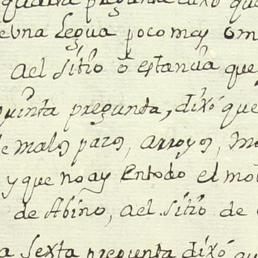 quarta pregunta dixó que
de una legua poco mas ó m
del sitio ó estancia que
quinta pregunta, dixó que
de malos pazos, arroyos, mo
y que no ay en todo el mo
de Abino, ael sitio de
a sexta pregunta dixó qu